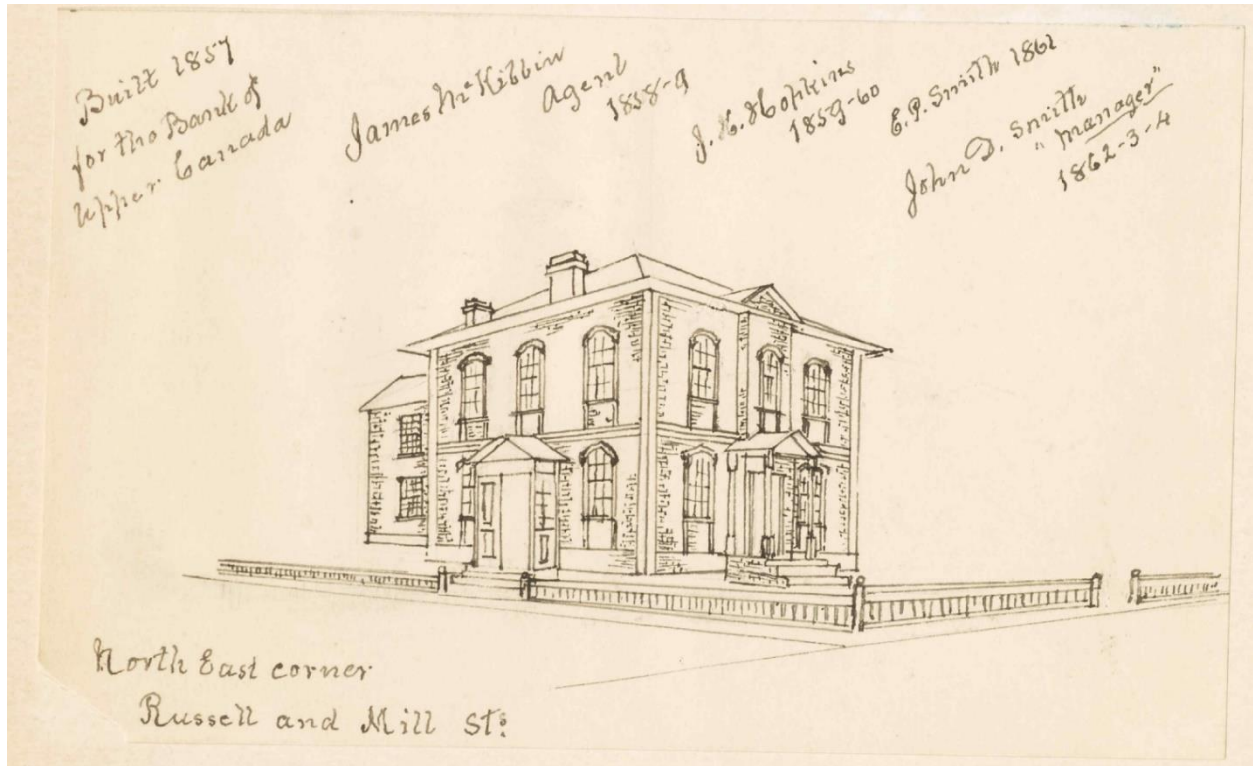 Built 1857
for the Bank of
Upper Canada
James McKibbin
Agent
1858-9
J. H. Hopkins
1859-60
E. P. Smith 1861
John D. Smith
"manager"
1862-3-4
North East corner
Russell and Mill Sts